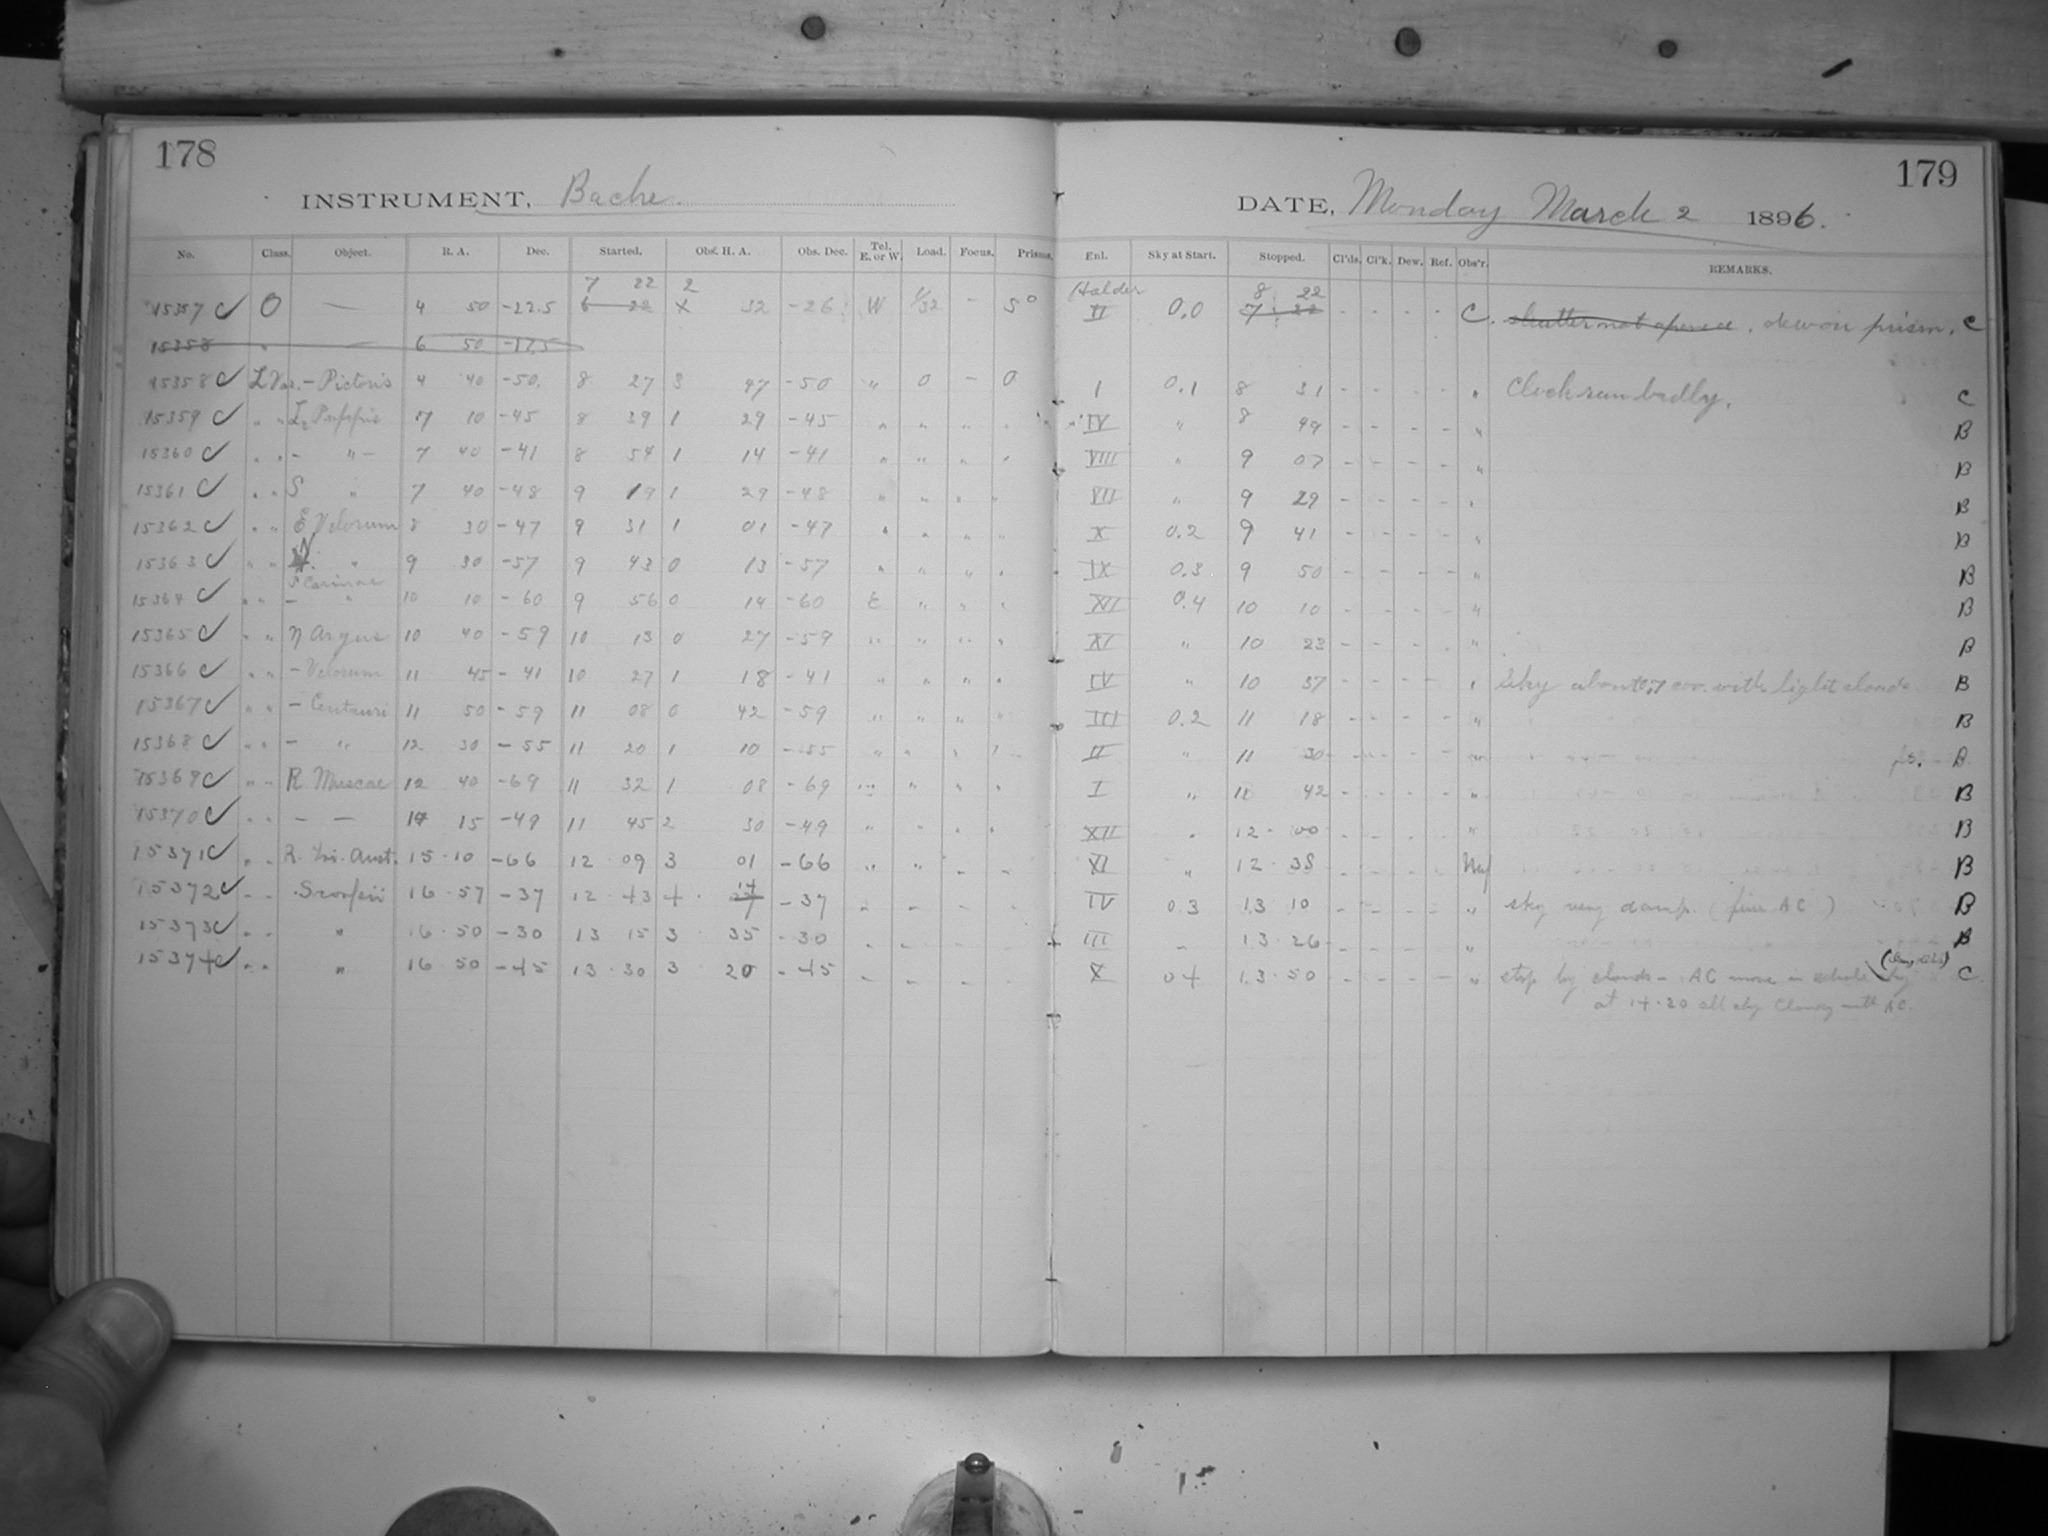 178
INSTRUMENT, Bache.
No. Class. Object. R. A. Dec. Started. Obs. H. A. Obs. Dec. Tel. E. or W. Load. Focus. Prisms.
7 22 2
15357 C ✓ O — 4 50 -22.5 6 22 X 32 -26 W - 5°
15358 " — 6 50 -17.5
15358 C ✓ L Var. - Pictoris 4 40 -50. 8 27 3 47 -50 " 0 - 0
15359 C ✓ " " L2 Puppis 7 10 -45 8 39 1 29 -45 " " " "
15360 C ✓ " " - " - 7 40 -41 8 54 1 14 -41 " " " "
15361 C ✓ " " S " 7 40 -48 9 19 1 29 -48 " " " "
15362 C ✓ " " E Velorum 8 30 -47 9 31 1 01 -47 " " " "
15363 C ✓ " " " 9 30 -57 9 43 0 13 -57 " " " "
Carinae
15364 C ✓ " " - " 10 10 -60 9 56 0 14 -60 E " " "
15365 C ✓ " " η Argus 10 40 -59 10 13 0 27 -59 " " " "
15366 C ✓ " " - Velorum 11 45 -41 10 27 1 18 -41 " " " "
15367 C ✓ " " - Centauri 11 50 -59 11 08 0 42 -59 " " " "
15368 C ✓ " " - " 12 30 -55 11 20 1 10 -55 " " " "
15369 C ✓ " " R Muscae 12 40 -69 11 32 1 08 -69 " " " "
15370 C ✓ " " - — 14 15 -49 11 45 2 30 -49 " " " "
15371 C ✓ " " R. Tri. Aust. 15 10 -66 12 09 3 01 -66 " " " "
15372 C ✓ " " Scorpii 16 57 -37 12 43 4 14 -37 " " " "
15373 C ✓ " " " 16 50 -30 13 15 3 35 -30 " " " "
15374 C ✓ " " " 16 50 -45 13 30 3 20 -45 " " " "
179
DATE, Monday March 2 1896.
Enl. Sky at Start. Stopped. Cl'ds. Cl'k. Dew. Ref. Obs'r. REMARKS.
Holder 8 22
VI 0.0 7 22 - - - - C. shutter not opened, dew on prism. C
I 0.1 8 31 - - - - " Clock ran badly. C
IV " 8 49 - - - - " B
VIII " 9 07 - - - - " B
VII " 9 29 - - - - " B
X 0.2 9 41 - - - - " B
IX 0.3 9 50 - - - - " B
XII 0.4 10 10 - - - - " B
XI " 10 23 - - - - " B
IV " 10 37 - - - - " Sky about 0.7 cov. with light clouds B
III 0.2 11 18 - - - - " B
II " 11 30 - - - - " B
I " 11 42 - - - - " B
XII " 12 00 - - - - " B
XI " 12 38 - - - - B
IV 0.3 13 10 - - - - " sky very damp. (fine AC) B
III " 13 26 - - - - " B
X 04 13 50 - - - - " stop by clouds - AC move in whole sky C
at 14.20 all sky cloudy with AC.